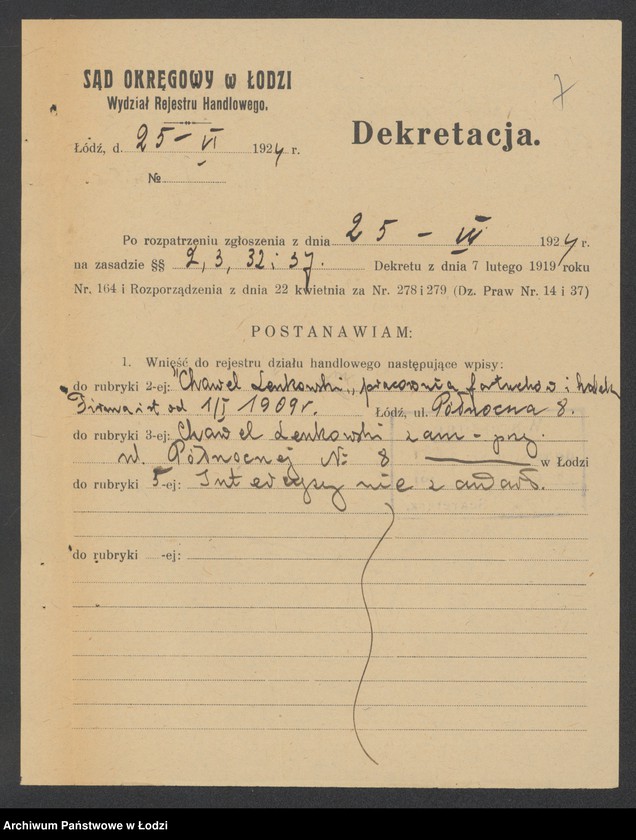 7
SĄD OKRĘGOWY w ŁODZI
Wydział Rejestru Handlowego.
Dekretacja.
Łódź, d. 25 - VI 1924 r.
№
Po rozpatrzeniu zgłoszenia z dnia 25 - III 1924 r.
na zasadzie §§ 2, 3, 32 i 37. Dekretu z dnia 7 lutego 1919 roku
Nr. 164 i Rozporządzenia z dnia 22 kwietnia za Nr. 278 i 279 (Dz. Praw Nr. 14 i 37)
POSTANAWIAM:
1. Wnieść do rejestru działu handlowego następujące wpisy:
do rubryki 2-ej: "Chawel Lenkowski", pracownia fartuchów i
Firma ist od 1/I 1909 r. Łódź, ul. Północna 8.
do rubryki 3-ej: Chawel Lenkowski zam - przy
ul. Północnej № 8 w Łodzi
do rubryki 5-ej: Intercyzy nie zawarł.
do rubryki -ej:
Archiwum Państwowe w Łodzi